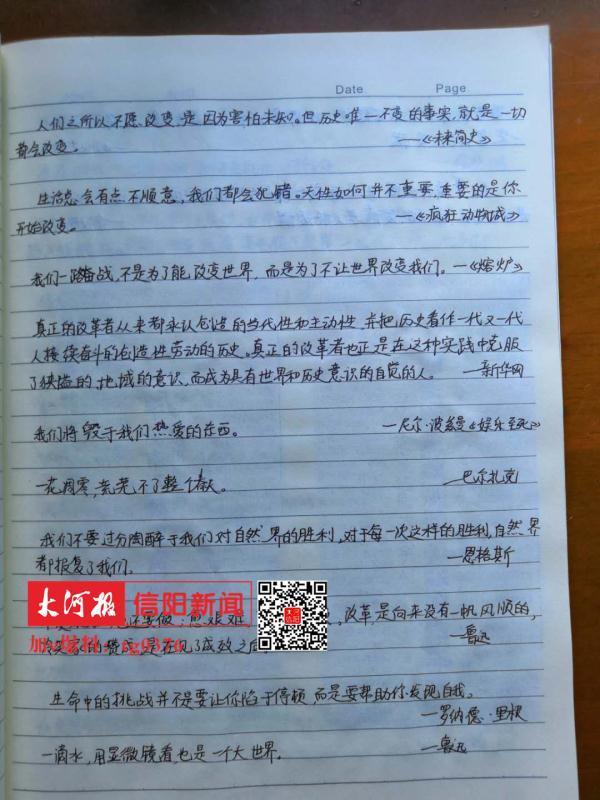 Date Page
人们之所以不愿改变,是因为害怕未知。但历史唯一不变的事实,就是一切
都会改变。 —《未来简史》
生活总会有点不顺意,我们都会犯错。天性如何并不重要,重要的是你
开始改变。 —《疯狂动物城》
我们一路奋战,不是为了能改变世界,而是为了不让世界改变我们。—《熔炉》
真正的改革者从来都承认创造的当代性和主动性,并把历史看作一代又一代
人接续奋斗的创造性劳动的历史。真正的改革者也正是在这种实践中克服
了狭隘的、地域的意识,而成为具有世界和历史意识的自觉的人。 —新华网
我们将毁于我们热爱的东西。 —尼尔·波兹曼《娱乐至死》
一花凋零,荒芜不了整个春天。 —巴尔扎克
我们不要过分陶醉于我们对自然界的胜利,对于每一次这样的胜利,自然界
都报复了我们。 —恩格斯
大河报 信阳新闻
还要做;愈艰难, 改革,是向来没有一帆风顺的,
是在见了成效之后 —鲁迅
生命中的挑战并不是要让你陷于停顿,而是要帮助你发现自我。
—罗纳德·里根
一滴水,用显微镜看也是一个大世界。 —鲁迅